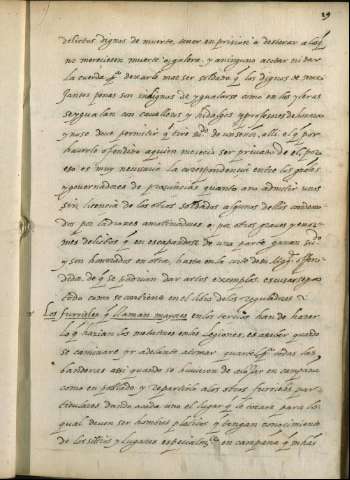 29
delictos dignos de muerte, tener en prision o desterrar a los q̃
no merecieren muerte o galera, y a ninguno acotar ni dar
la cuerda q̃ dexarle mas ser soldado q̃ los dignos de seme
jantes penas son indignos de ygualarse como en las yleras
se ygualan con caualleros y hidalgos y profesores de honra
y no se deue permitir q̃ este en de un señor, alli el q̃ por
hauerle ofendido a quien merecia ser priuado de el, por
eso es muy necesaria la correspondencia entre los
y gouernadores de prouincias quanto a no admitir unos
sin licencia de los otros soldados algunos dellos condena
dos por ladrones amotinadores o por otros graues y enor
mes delictos q̃ en escapandose de una parte ganan
y son honrrados en otra, hasta en la corte de su Magᵈ offen
dida, de q̃ se podrian dar artos exemplos escusarse
todo como se contiene en el libro de las
Los furrieles q̃ llaman mayores en los tercios han de hazer
lo q̃ hazian los metatores en las legiones, es a sauer quando
se caminare yr adelante a tomar quartel p.ª todas las
banderas assi quando se huuieren de alojar en campaña
como en poblado y repartirle a los otros furrieles par
ticulares dando a cada uno el lugar q̃ le tocare para lo
qual deuen ser hombres platicos y tengan conocimiento
de los sittios y lugares especialm.te en campaña q̃ mas